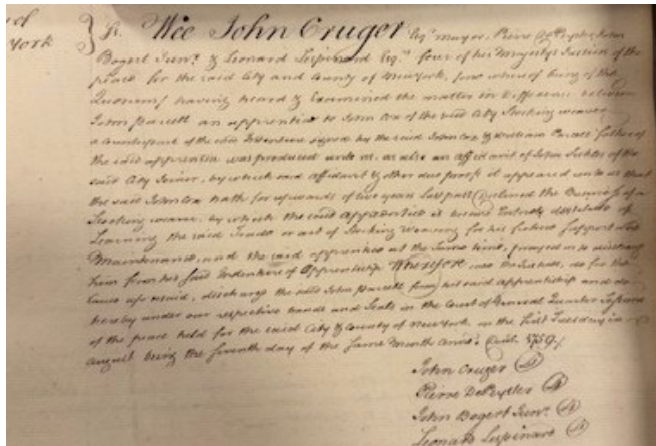 of
York
} ss. Wee John Cruger Esqr. Mayor, Pierre DePeyster, John
Bogert Junr. & Leonard Lispinard Esqrs. four of his Majestys Justices of the
peace for the said City and County of New York, four whereof being of the
Quorum, having heard & Examined the matter in Difference between
John Parcell an apprentice to John Cox of the said City Stocking weaver
a Counterpart of the said Indenture signed by the said John Cox & William Parcell father of
the said apprentice was produced unto us, as also an affidavit of John of the
said City Joiner, by which said affidavit & other due proof it appeared unto us that
the said John Cox hath for upwards of five years last past declined the Business of a
Stocking weaver, by which the said apprentice is become Intirely destitute of
Learning the said Trade or art of Stocking Weaving for his future support and
Maintenance, and the said apprentice at the same time, prayed us to discharge
him from his said Indenture of Apprenticeship Wherefore wee the Justices, do for the
Cause aforesaid, discharge the said John Parcell from his said apprenticeship and do
hereby under our respective hands and Seals in the Court of General Quarter Sessions
of the peace held for the said City & County of New York, on the first Tuesday in
august being the seventh day of the same Month Anno: 1759./
John Cruger LS
Pierre DePeyster LS
John Bogert Junr. LS
Leonard Lispinard LS